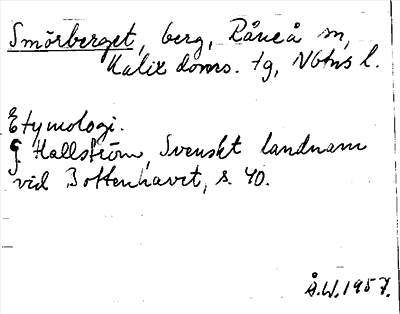 Smörberget, berg, Råneå sn,
Kalix doms. tg, Nbtns l.
Etymologi.
G Hallström, Svenskt landnam
vid Bottenhavet, s. 40.
Å.W. 1957.